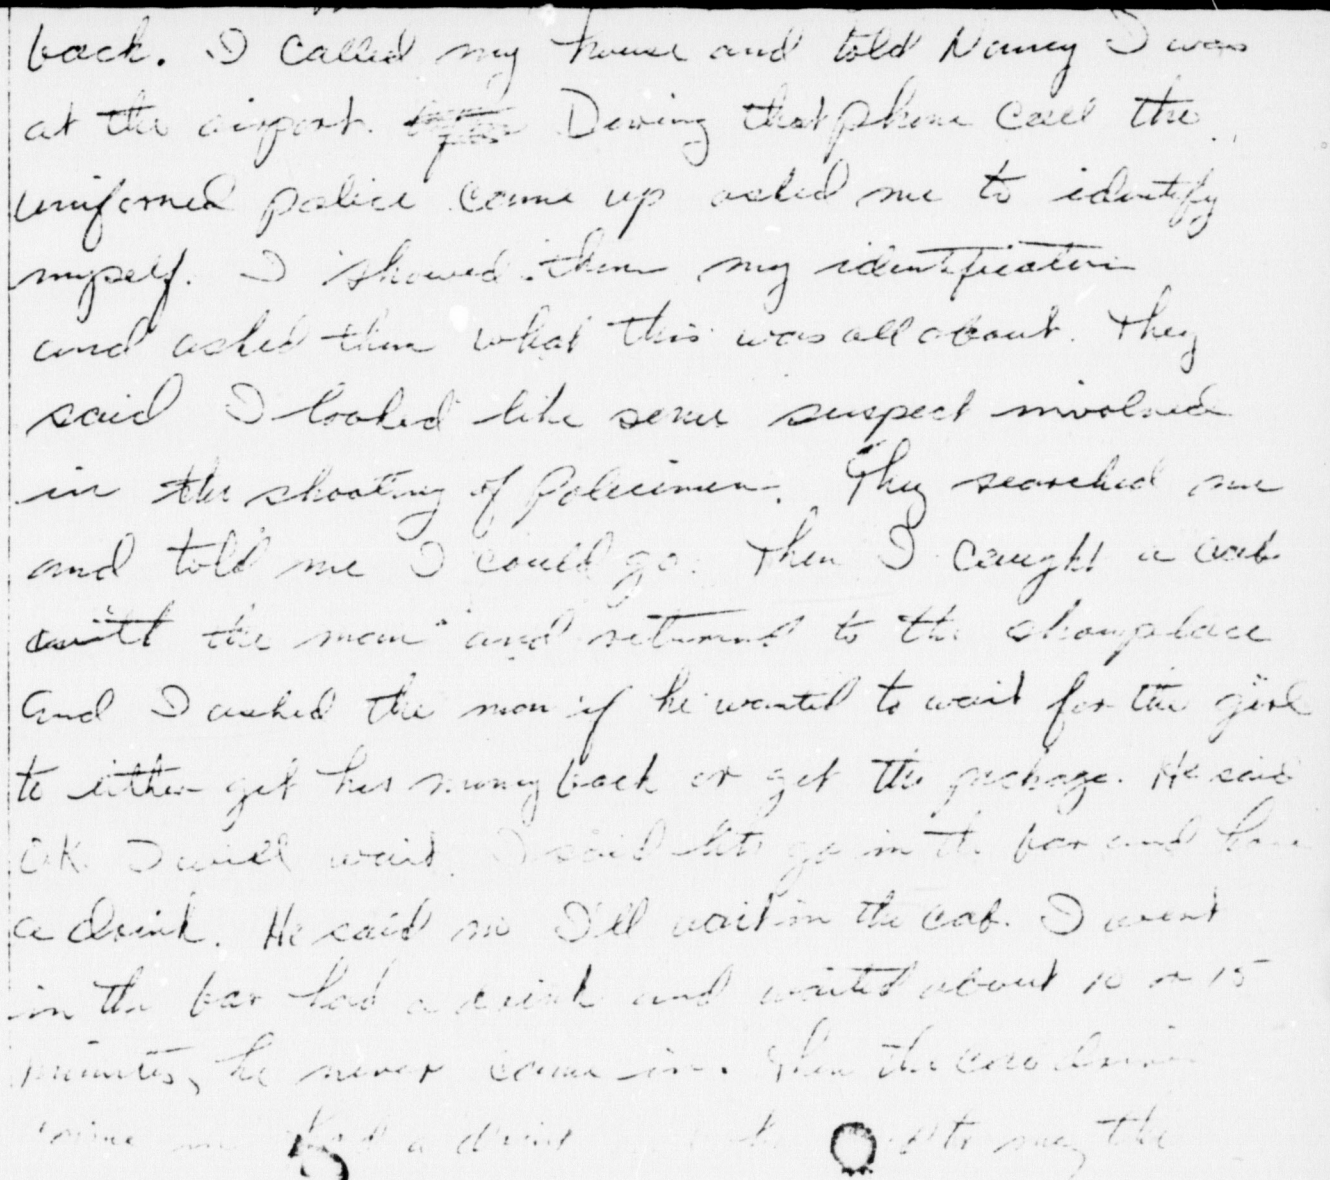 back. I called my house and told Nancy I was
at the airport. During that phone call the
uniformed police came up asked me to identify
myself. I showed them my identification
and asked them what this was all about. They
said I looked like some suspect involved
in the shooting of Policemen. They searched me
and told me I could go. Then I caught a cab
with the man and returned to the showplace
and I asked the man if he wanted to wait for the girl
to either get his money back or get the package. He said
O.K. I will wait. I said lets go in the bar and have
a drink. He said no I'll wait in the cab. I went
in the bar had a drink and waited about 10 or 15
minutes, he never came in. Then the cab driver
came in had a drink me the